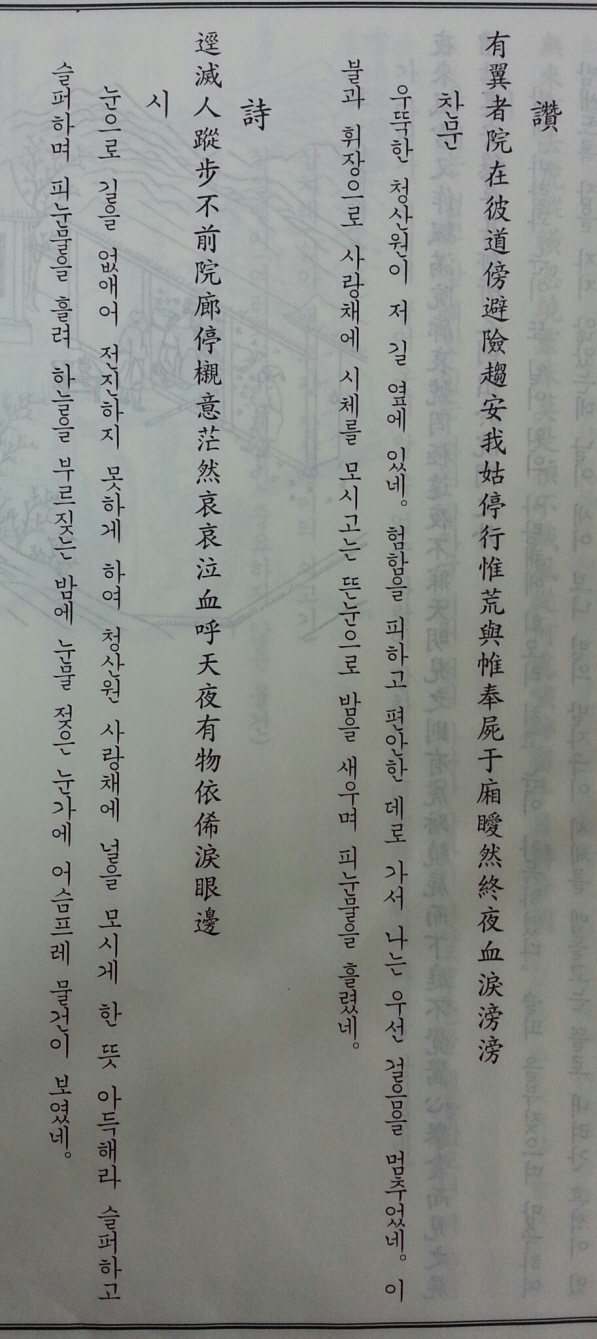 讚
有翼者院在彼道傍避險趨安我姑停行惟荒與帷奉屍于廂曖然終夜血淚滂滂
찬문
우뚝한 청산원이 저 길 옆에 있네. 험함을 피하고 편안한 데로 가서 나는 우선 걸음을 멈추었네. 이
불과 휘장으로 사랑채에 시체를 모시고는 뜬눈으로 밤을 새우며 피눈물을 흘렸네.
詩
逕滅人蹤步不前院廊停櫬意茫然哀哀泣血呼天夜有物依俙淚眼邊
시
눈으로 길을 없애어 전진하지 못하게 하여 청산원 사랑채에 널을 모시게 한 뜻 아득해라 슬퍼하고
슬퍼하며 피눈물을 흘려 하늘을 부르짖는 밤에 눈물 젖은 눈가에 어슴프레 물건이 보였네.